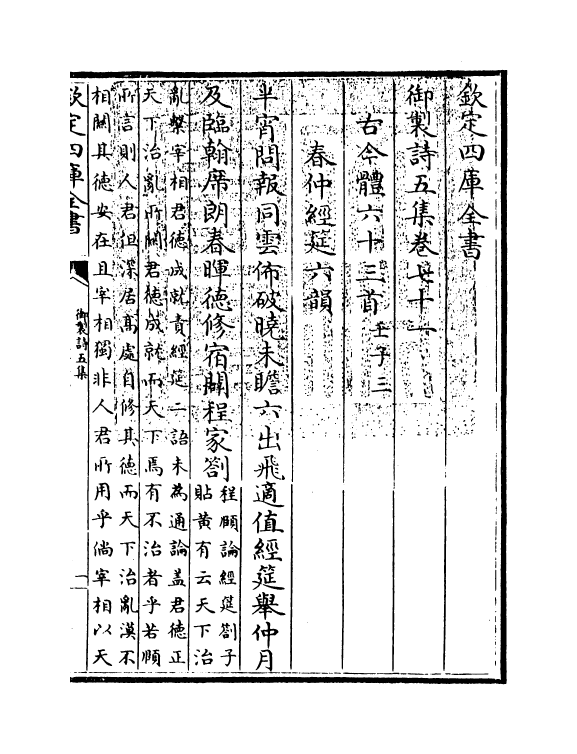 欽定四庫全書
御製詩五集卷七十一
古今體六十三首壬子三
春仲經筵六韻
半宵問報同雲布破曉未瞻六出飛適值經筵舉仲月
及臨翰席朗春暉德修宿闢程家劄程頤論經筵劄子
貼黄有云天下治
亂繫宰相君德成就責經筵二語未為通論葢君德正
天下治亂所關君德成就而天下焉有不治者乎若頤
所言則人君但深居高處自修其德而天下治亂漠不
相關其德安在且宰相獨非人君所用乎倘宰相以天
欽定四庫全書
御製詩五集
一